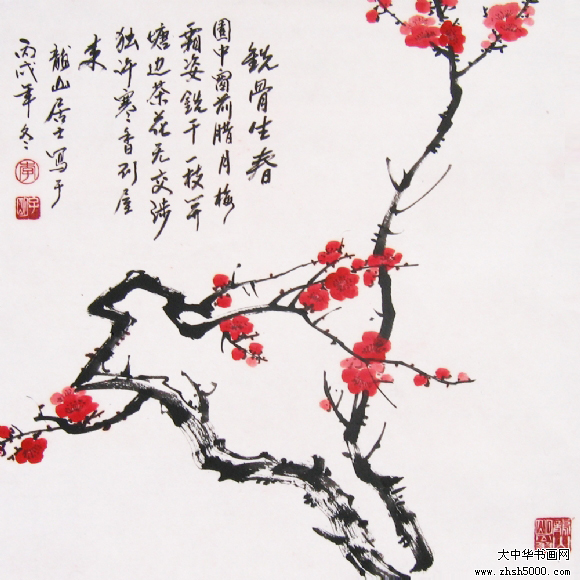 銕骨生春
園中窗前腊月梅
霜姿銕干一枝开
塘边茶花无交涉
独许寒香到屋
来
龍山居士写于
丙戌年冬
大中华书画网
www.zhsh5000.com